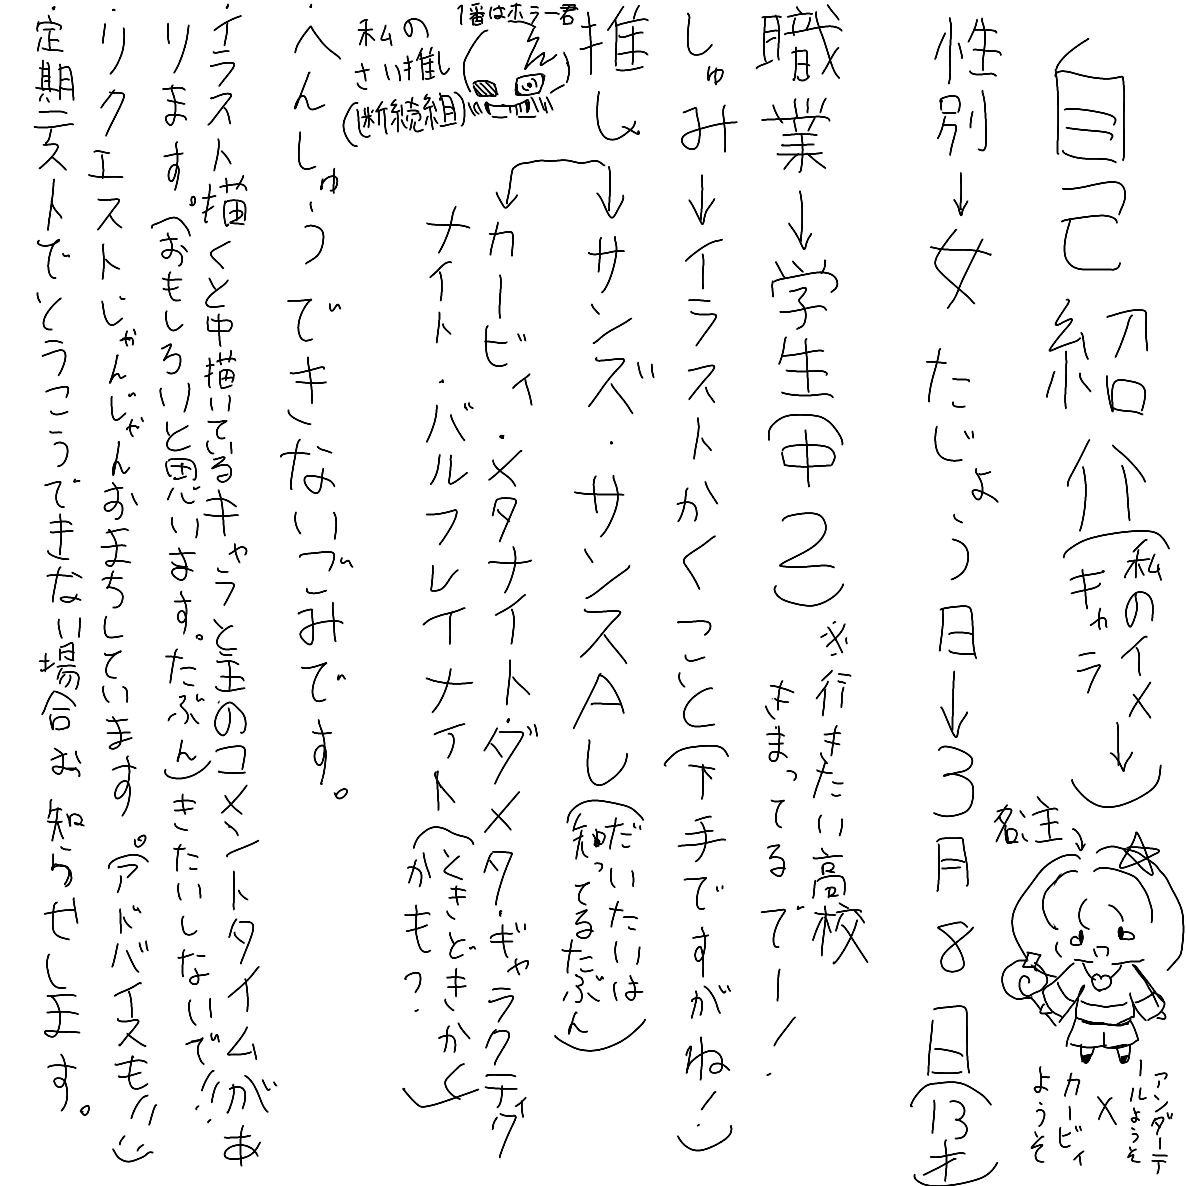 自己紹介(私のイメキャラ↓)
名主→
アンダーテールようそ
×
カービィようそ
性別→女 たじょう日→3月8日(13才)
職業→学生(中2)※行きたい高校きまってるでー!
しゅみ→イラストかくこと(下手ですがね!)
推し→サンズ・サンスAU(だいたいは知ってるたぶん)
→カービィ・メタナイト・ダメタ・ギャラクティクナイト・バルフレイナイト(ときどきかくかも?)
1番はホラー君
私のさい推し(断続組)
・へんしゅうできないごみです。
・イラスト描くと中描いているキャラと主のコメントタイムがあります。(おもしろいと思います。たぶん)きたいしないで!!!
・リクエストじゃんじゃんおまちしています。(アドバイスも!!)
・定期テストでとうこうできない場合お知らせします。